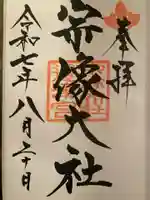 奉拝
宗像大社
令和七年八月二十日